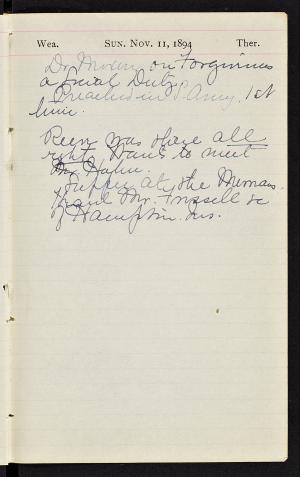 Wea. SUN. NOV. 11, 1894 Ther.
Dr. on Forgiveness
a Social Duty.
Preached in S. Army. 1st
time.
Reem was there all
right. Wants to meet
Mr. Hahn.
Supper at the
Frank Mr. Frissell &c
of Hampton. Ins.